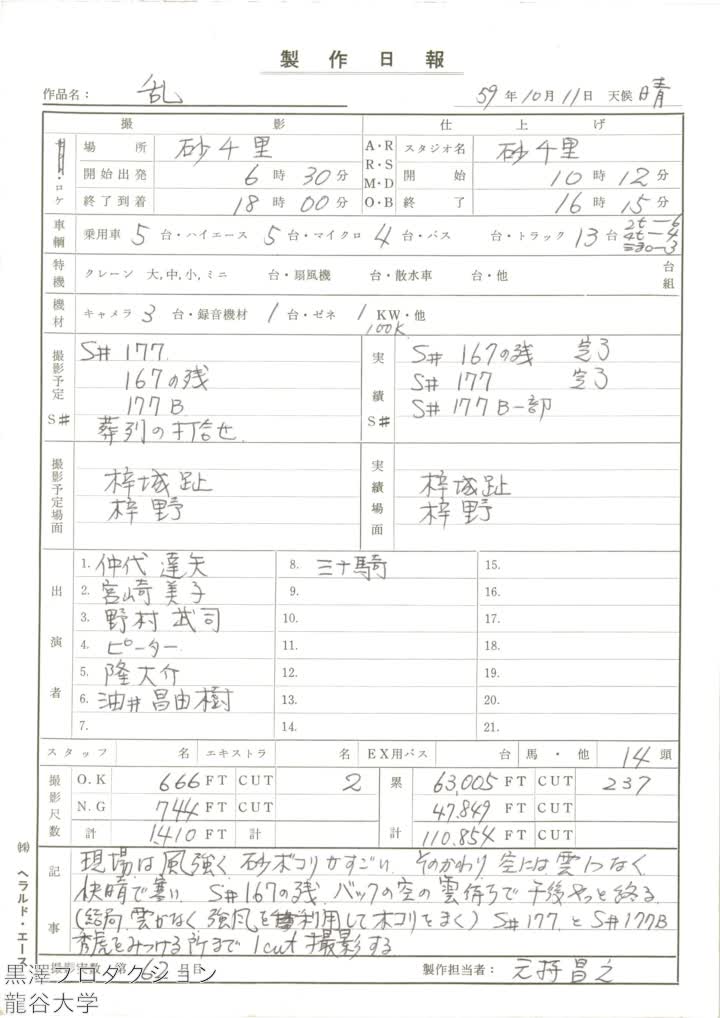 製作日報
作品名: 乱 59年10月11日 天候 晴
撮影 仕上げ
・ロケ 場所 砂千里 A・R R・S M・D O・B スタジオ名 砂千里
開始出発 6時30分 開始 10時12分
終了到着 18時00分 終了 16時15分
車輌 乗用車 5台・ハイエース 5台・マイクロ 4台・バス 台・トラック 13台 2t-6 4t-4
特機 クレーン 大,中,小,ミニ 台・扇風機 台・散水車 台・他 台組
機材 キャメラ 3台・録音機材 1台・ゼネ 1KW・他
100K
撮影予定S# 実績S#
S# 177 S# 167の残 完了
167の残 S# 177 完了
177B S# 177B一部
葬列の打合せ
撮影予定場面 実績場面
梓城趾 梓城趾
梓野 梓野
出演者
1. 仲代達矢 8. 三十騎 15.
2. 宮崎美子 9. 16.
3. 野村武司 10. 17.
4. ピーター 11. 18.
5. 隆大介 12. 19.
6. 油井昌由樹 13. 20.
7. 14. 21.
スタッフ 名 エキストラ 名 EX用バス 台 馬・他 14頭
撮影尺数 O.K 666 FT CUT 2 累計 63,005 FT CUT 237
N.G 744 FT CUT 47,849 FT CUT
計 1410 FT 計 110,854 FT CUT
記事
現場は風強く砂ボコリがすごい、そのかわり空には雲一つなく
快晴で寒い、S#167の残、バックの空の雲待ちで午後やっと終る
(結局、雲がなく強風を利用してホコリをまく) S#177とS#177B
秀虎をみつける所まで1cut撮影する
撮影実数 第62日目 製作担当者:
㈱ヘラルド・エース
黒澤プロダクション
龍谷大学